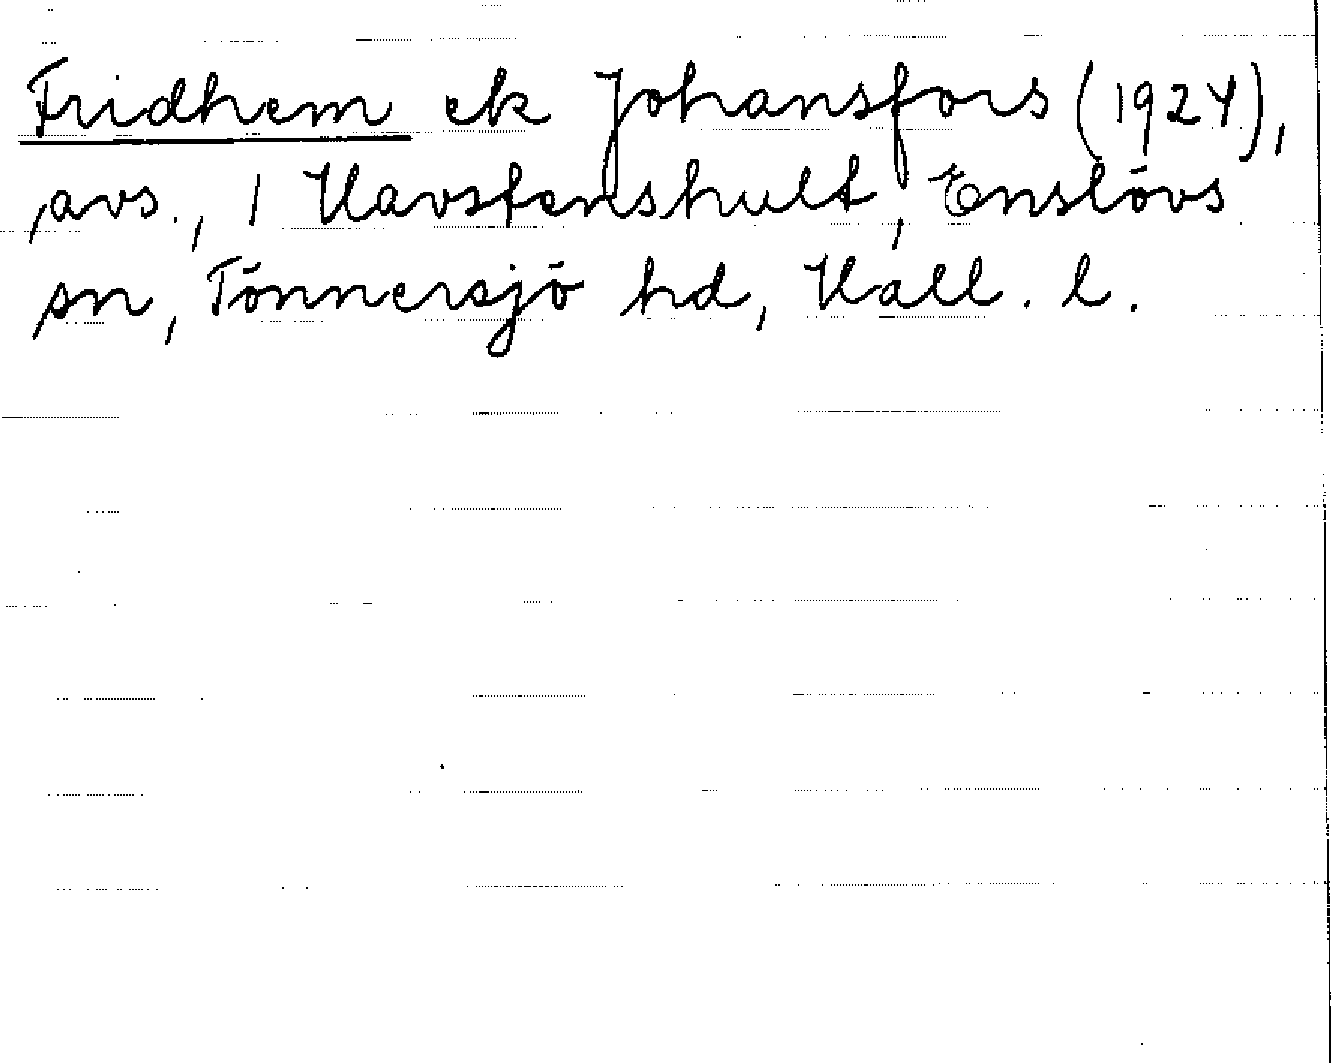 Fridhem ek Johansfors (1924),
, avs., 1 Havstenshult, Enslövs
sn, Tönnersjö hd, Hall. l.